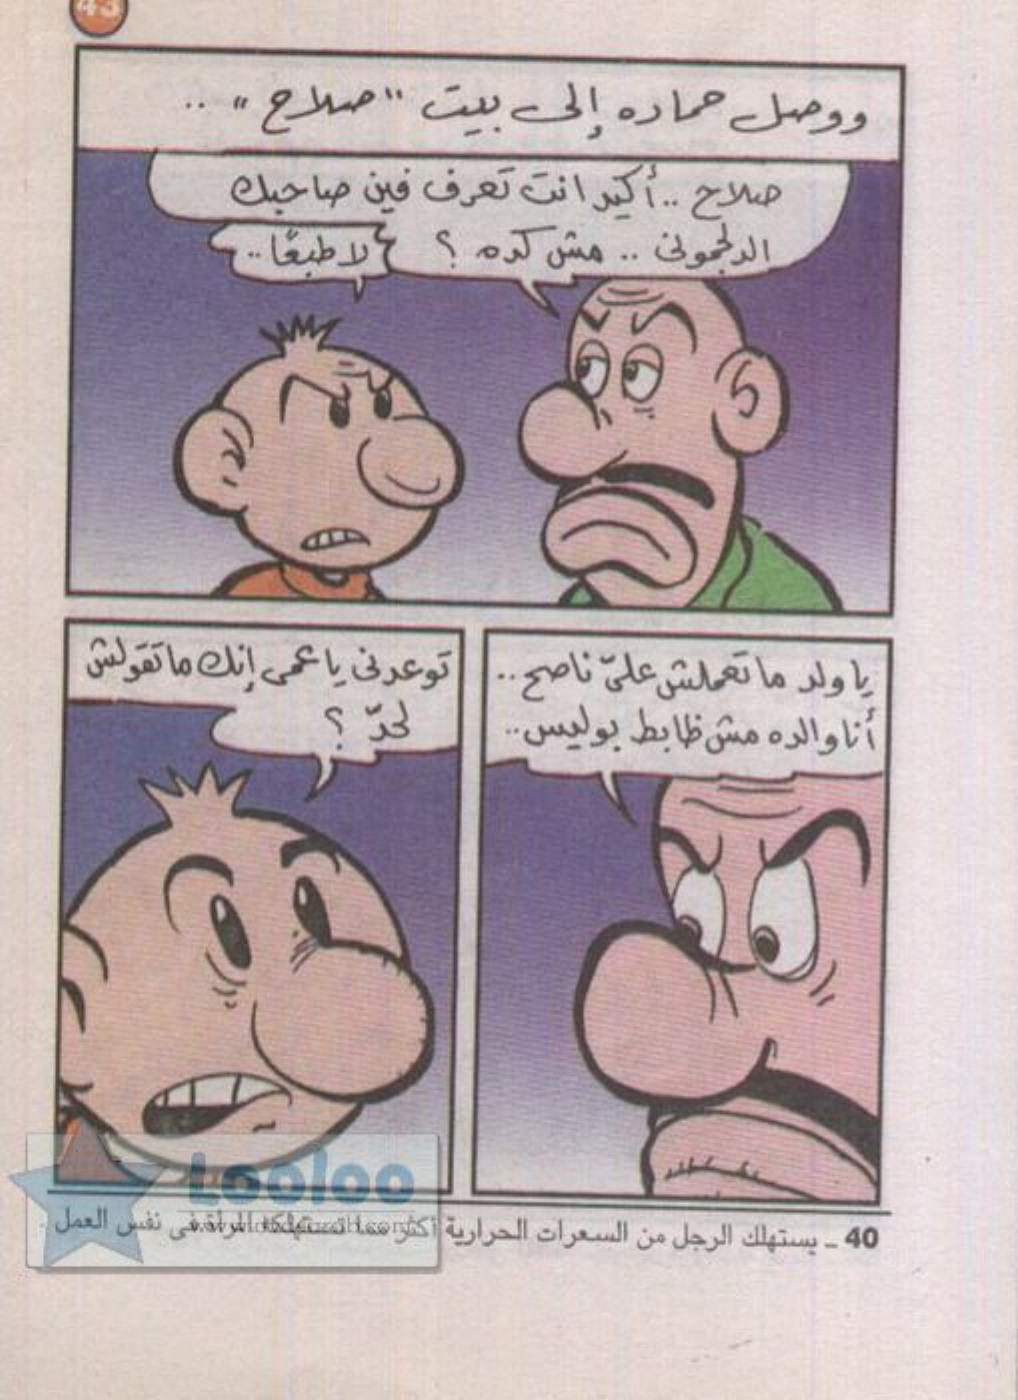 43
ووصل حماده إلى بيت "صلاح" ..
صلاح .. أكيد انت تعرف فين صاحبك
الدلجمونى .. مش كده ؟
لا طبعًا ..
يا ولد ما تعملش علىّ ناصح ..
أنا والده مش ظابط بوليس ..
توعدنى يا عمى إنك ما تقولش
لحدّ ؟
40 ـ يستهلك الرجل من السعرات الحرارية أكثر مما تستهلكه المرأة فى نفس العمل .
Looloo